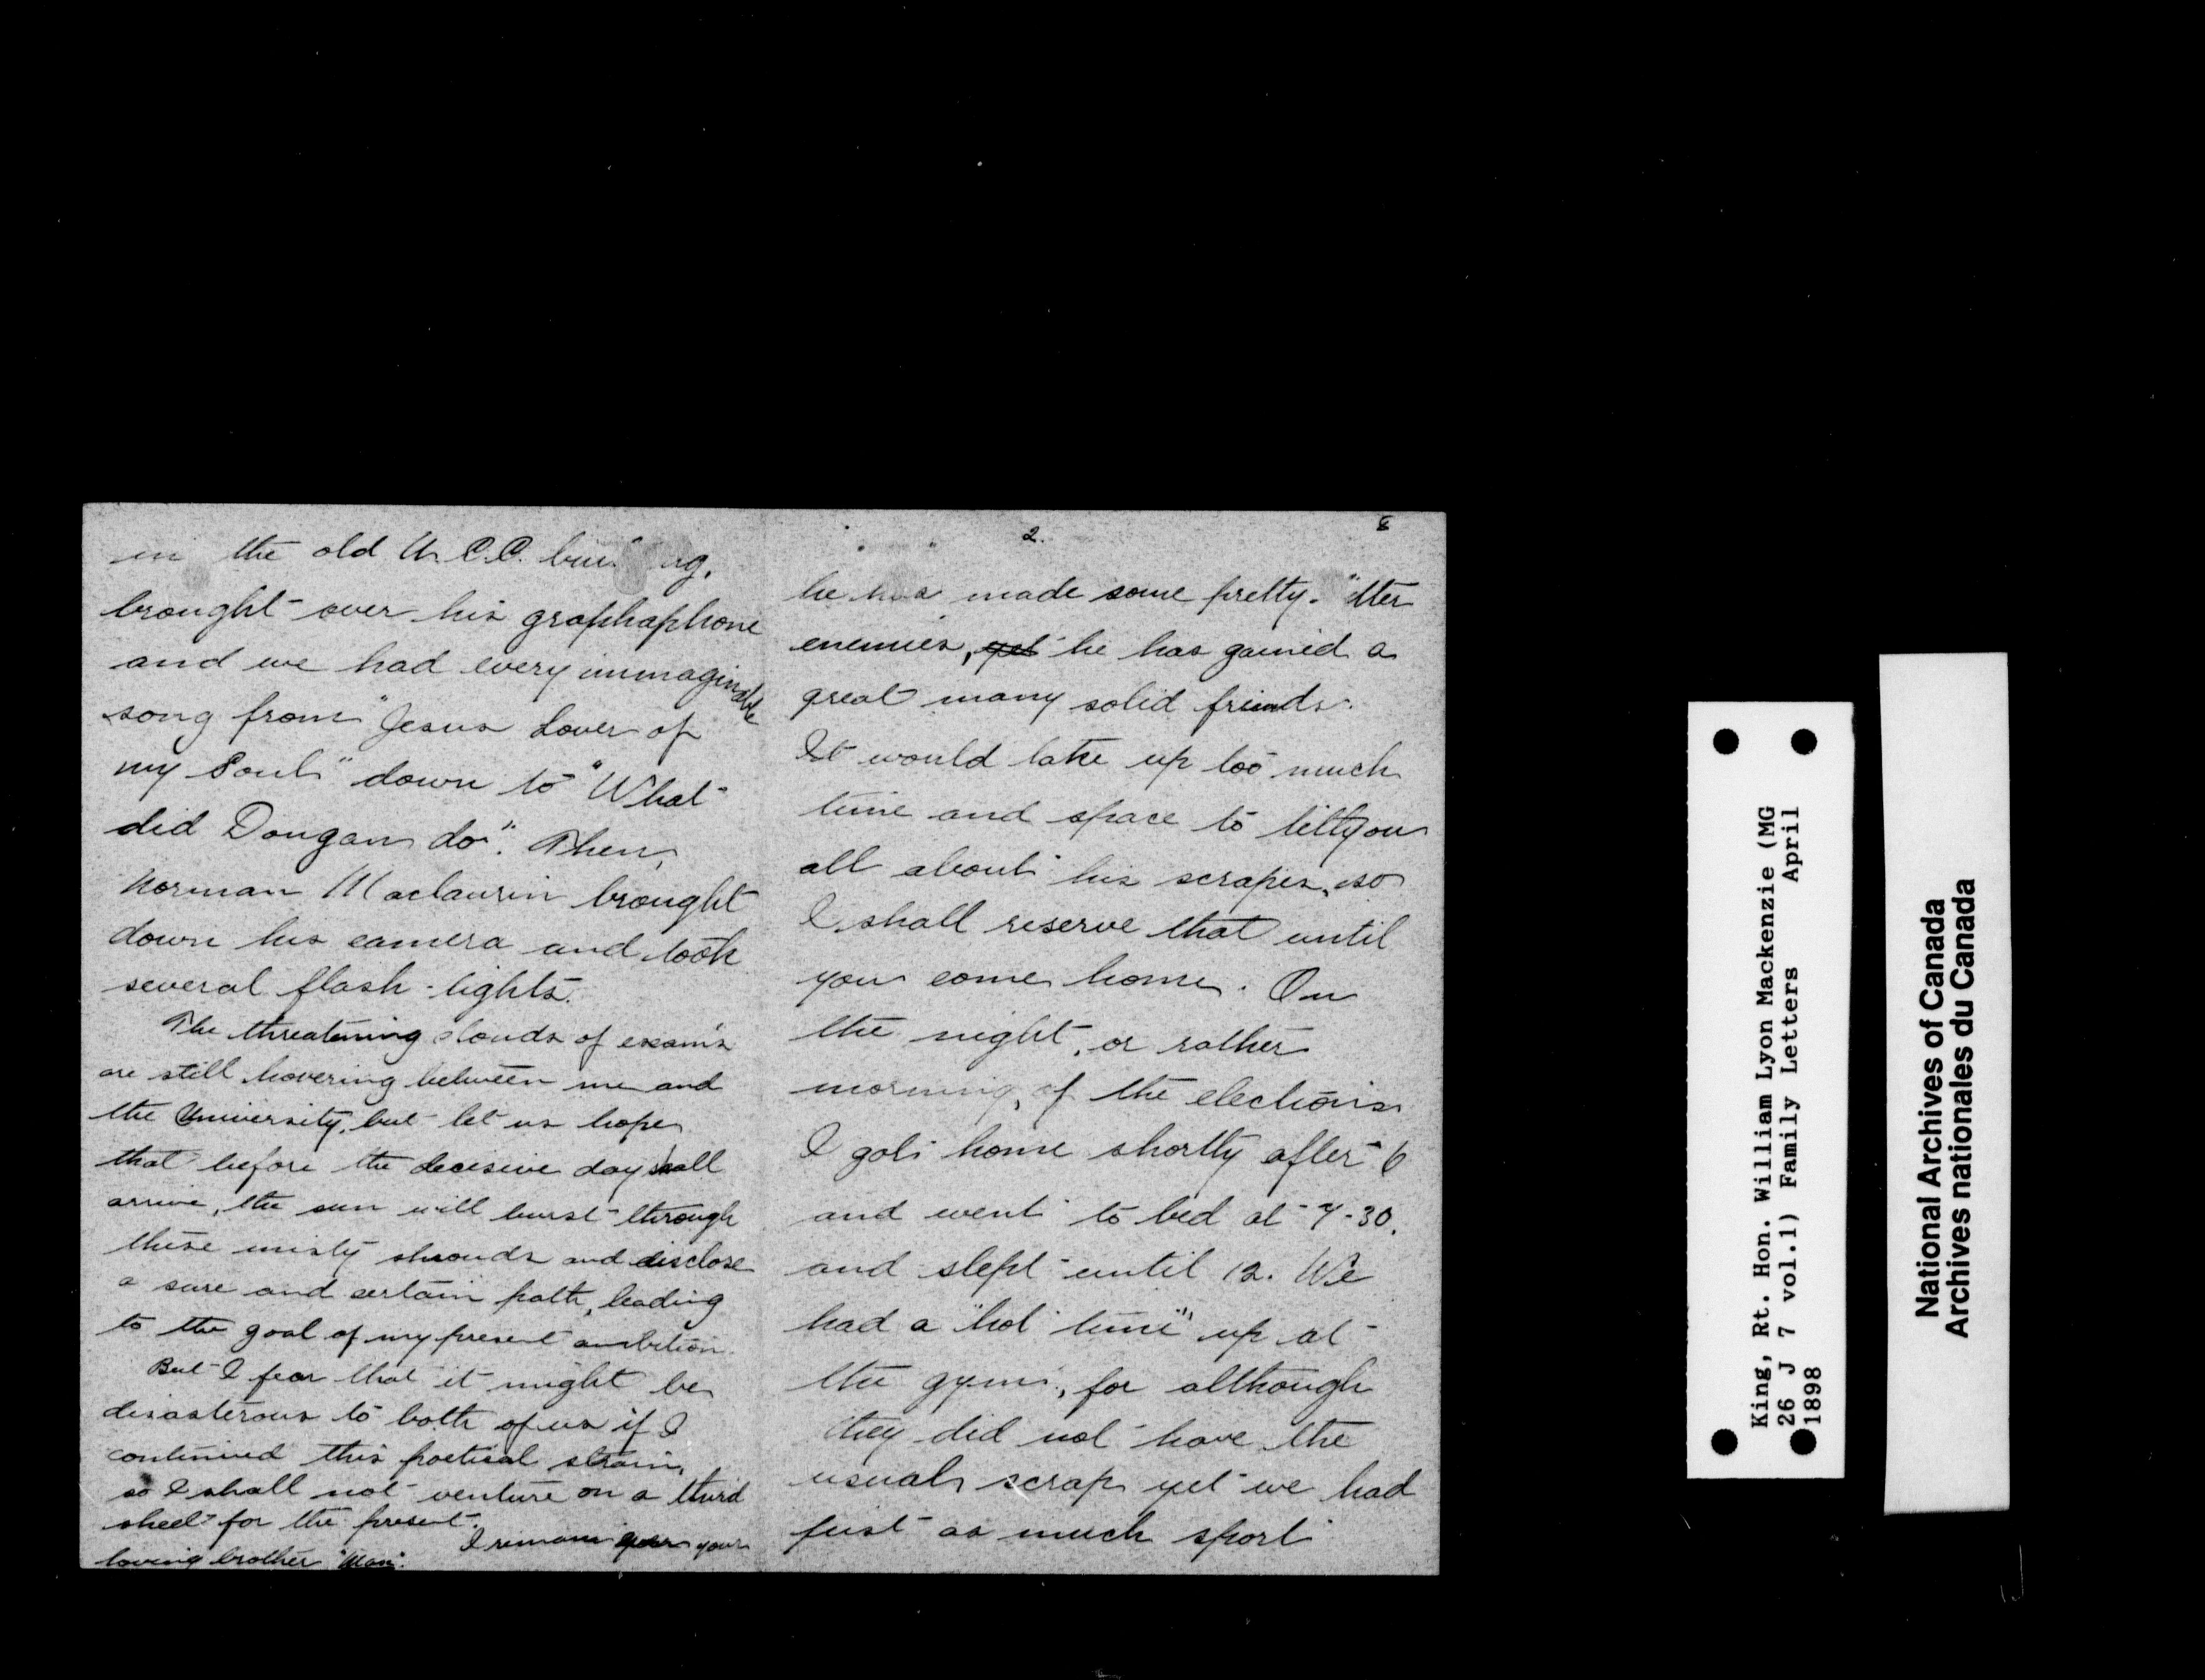 in the old U.C.C. buil ng,
brought over his graphaphone
and we had every immaginable
song from "Jesus Lover of
my Soul" down to "What
did Dougan do". Then,
Norman Maclaurin brought
down his camera and took
several flash-lights.
The threatening clouds of exam's
are still hovering between me and
the University, but let us hope
that before the decisive day shall
arrive, the sun will burst through
these misty shrouds and disclose
a sure and certain path, leading
to the goal of my present ambition.
But I fear that it might be
disasterous to both of us if I
continued this poetical strain,
so I shall not venture on a third
sheet for the present.
I remain your
loving brother "Max".
2.
8
he has made some pretty itter
enemies, yet he has gained a
great many solid friends.
It would take up too much
time and space to tell you
all about his scrapes, so
I shall reserve that until
you come home. On
the night, or rather
morning, of the elections
I got home shortly after 6
and went to bed at 7-30.
and slept until 12. We
had a "hot time" up at
the gym., for although
they did not have the
usual scrap yet we had
just as much sport
King, Rt. Hon. William Lyon Mackenzie (MG
26 J 7 vol.1) Family Letters April
1898
National Archives of Canada
Archives nationales du Canada